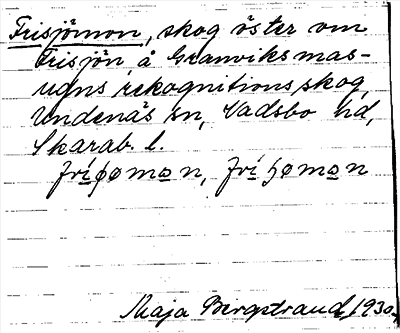 Frisjömon, skog öster om
Frisjön å Granviks mas-
ugns rekognitionsskog,
Undenäs sn, Vadsbo hd,
Skarab. l.
Maja Bergstrand 1930.